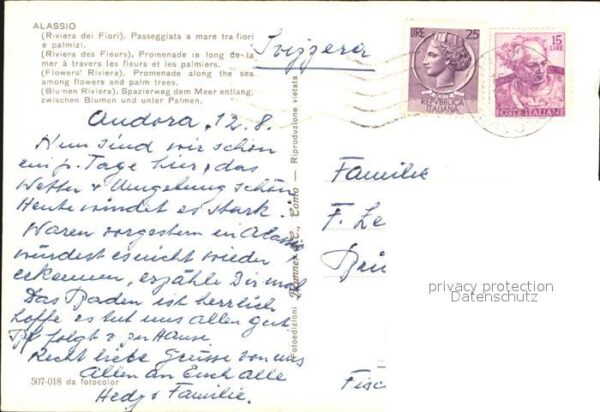 ALASSIO
(Riviera dei Fiori). Passeggiata a mare tra fiori
e palmizi.
(Riviera des Fleurs). Promenade le long de la
mer à travers les fleurs et les palmiers.
(Flowers' Riviera). Promenade along the sea
among flowers and palm trees.
(Blumen Riviera). Spazierweg dem Meer entlang,
zwischen Blumen und unter Palmen.
Svizzera
LIRE 25
REPVBBLICA
ITALIANA
15
LIRE
POSTE ITALIANE
Andora, 12.8.
Nun sind wir schon
einp. Tage hier, das
Wetter + Umgebung schön
Heute windet es stark.
Waren vorgestern in Alassio
würdest es nicht wieder
erkennen, erzähle Dir mal
Das Baden ist herrlich
hoffe es tut uns allen gut.
folgt z. zu Hause.
Recht liebe Grüsse von uns
Allen an Euch alle
Hedy + Familie.
Familie
F. Le
Brü
Fisc
privacy protection
Datenschutz
Fotoedizioni C., Como — Riproduzione vietata
507-018 da fotocolor